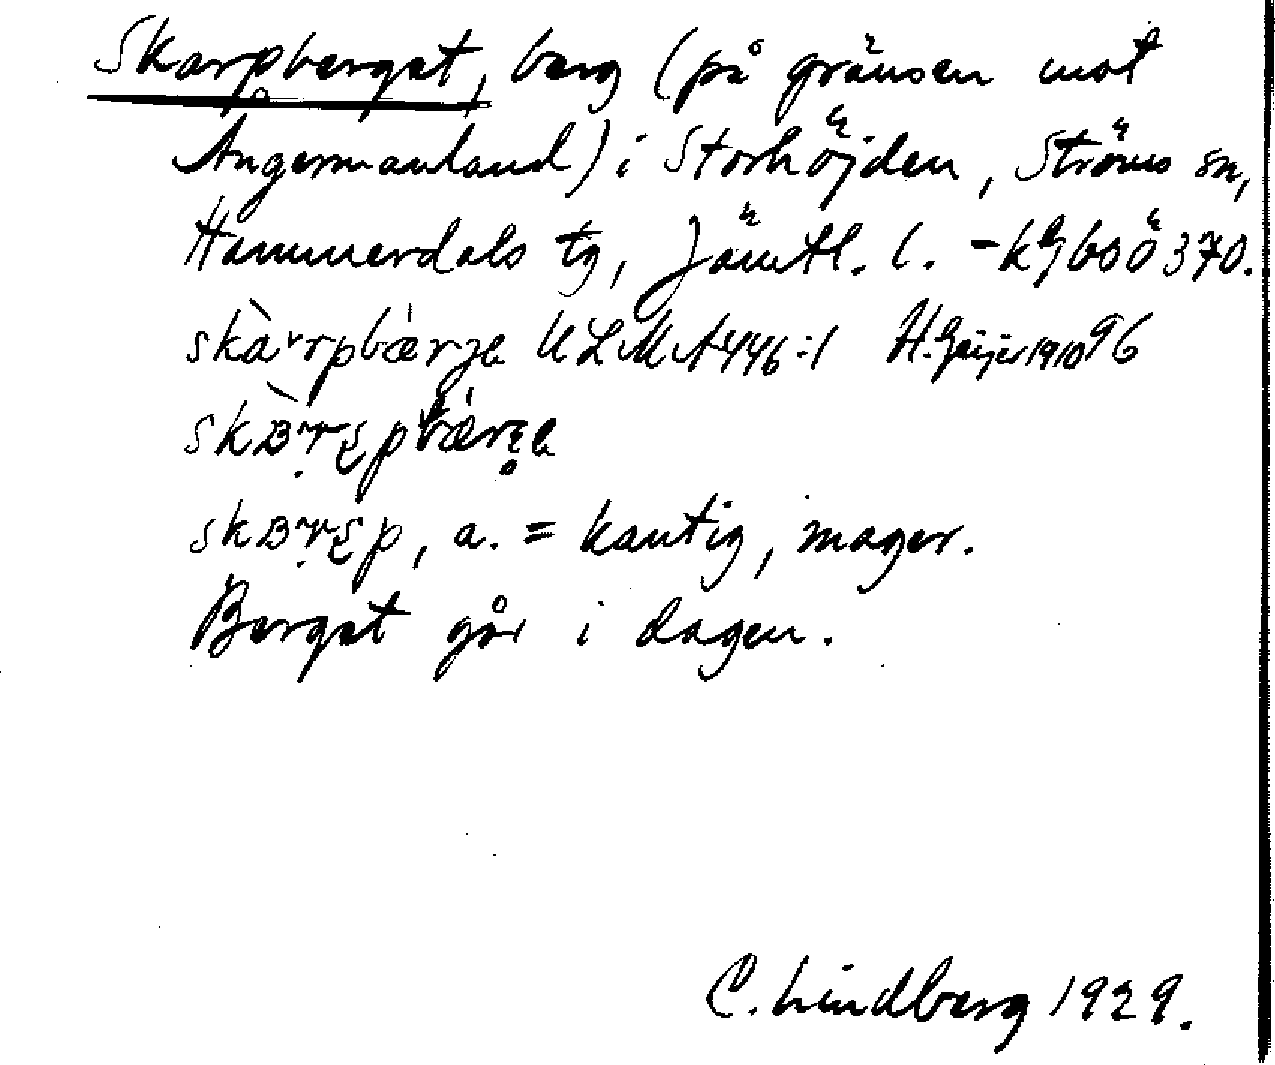 Skarpberget, berg (på gränsen mot
Ångermanland) i Storhöjden, Ströms sn,
Hammerdals tg, Jämtl. l. - kgbsö 370.
ULMA 446:1 H. Geijer 1910 96
a. = kantig, mager.
Berget går i dagen.
C. Lindberg 1929.